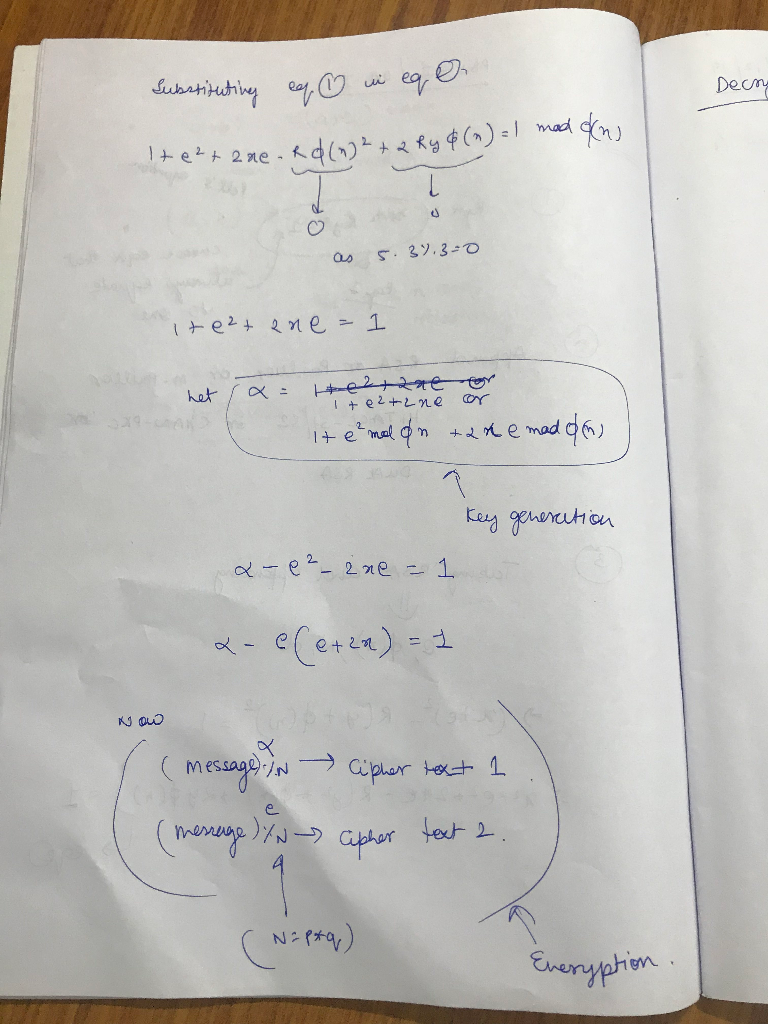 Substituting eq ① in eq ②.
1 + e² + 2xe - Rϕ(n)² + 2Ryϕ(n) = 1 mod ϕ(n)
↓ ↓
0 0
as 5.3%3=0
1 + e² + 2xe = 1
Let α = 1 + e² + 2xe or
1 + e² + 2xe or
1 + e² mod ϕn + 2xe mod ϕ(n)
Key generation
α - e² - 2xe = 1
α - e(e+2x) = 1
Now
(message)^α %N → Cipher text 1
(message)^e %N → Cipher text 2.
(N=p*q)
Encryption.